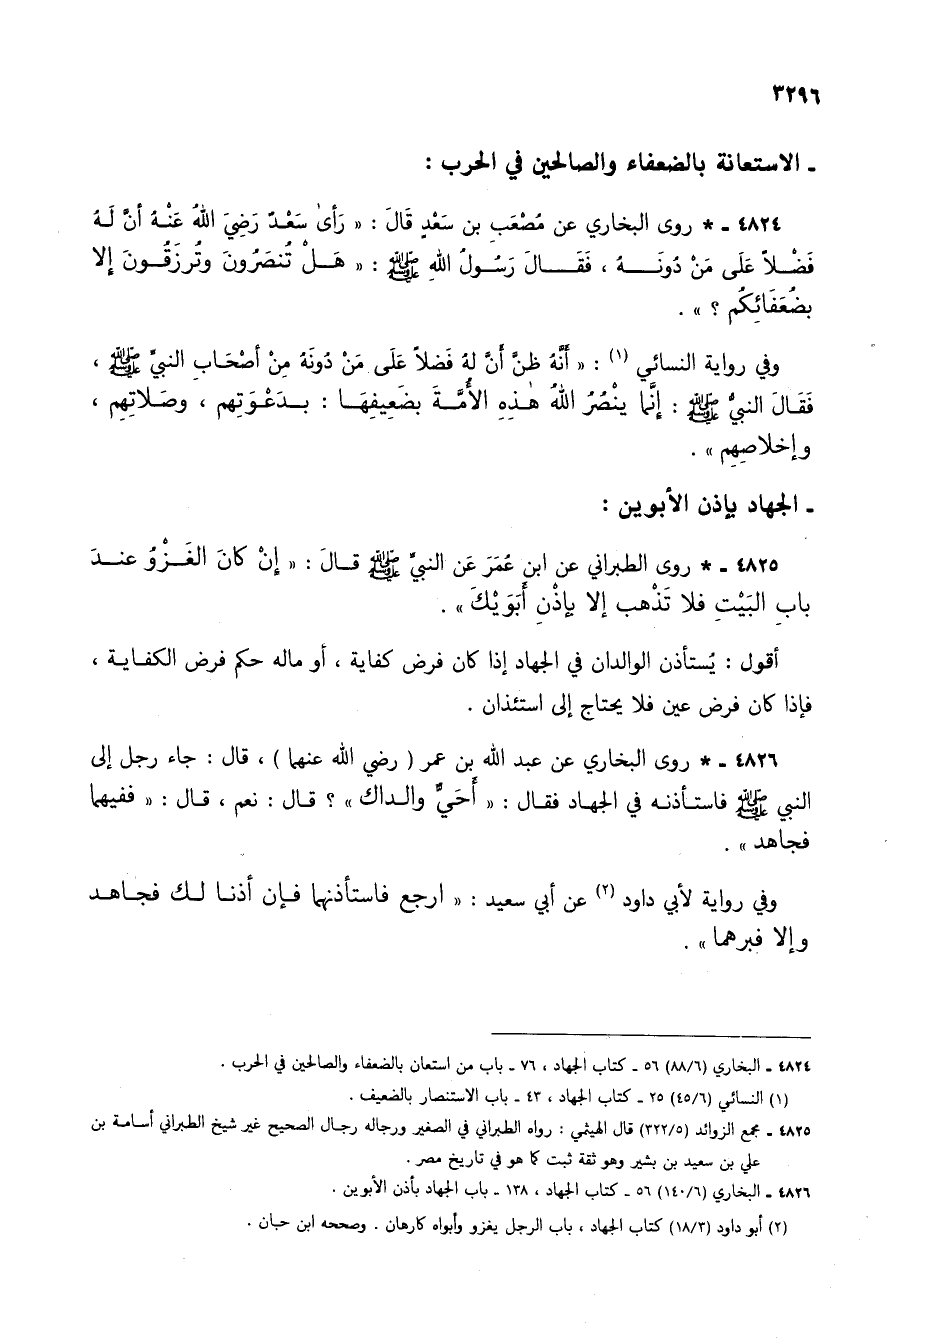 ٣٢٩٦
ـ الاستعانة بالضعفاء والصالحين في الحرب :
٤٨٢٤ ـ * روى البخاري عن مُصْعَبِ بن سَعْدٍ قَالَ : « رَأىٰ سَعْدٌ رَضِيَ اللهُ عَنْهُ أنَّ لَهُ
فَضْلاً عَلَى مَنْ دُونَهُ ، فَقَالَ رَسُولُ اللهِ ﷺ : « هَلْ تُنصَرُونَ وتُرزَقُونَ إلا
بِضُعَفَائِكُم ؟ » .
وفي رواية النسائي (١) : « أنَّهُ ظنَّ أنَّ لهُ فَضلاً عَلَى مَنْ دُونَهُ مِنْ أصْحَابِ النبيِّ ﷺ ،
فَقَالَ النبيُّ ﷺ : إنَّما ينْصُرُ اللهُ هٰذِهِ الأمَّةَ بضَعِيفِهَا : بِدَعْوَتِهِم ، وصَلاتِهِم ،
وإخلاصِهِم » .
ـ الجهاد بإذن الأبوين :
٤٨٢٥ ـ * روى الطبراني عن ابنِ عُمَرَ عَن النبيِّ ﷺ قالَ : « إنْ كانَ الغَزْوُ عندَ
بابِ البَيْتِ فلا تَذْهب إلا بإذْنِ أَبَوَيْكَ » .
أقول : يُستأذن الوالدان في الجهاد إذا كان فرض كفاية ، أو ماله حكم فرض الكفاية ،
فإذا كان فرض عين فلا يحتاج إلى استئذان .
٤٨٢٦ ـ * روى البخاري عن عبد الله بن عمر ( رضي الله عنهما ) ، قال : جاء رجل إلى
النبي ﷺ فاستأذنه في الجهاد فقال : « أَحَيٌّ والداك » ؟ قال : نعم ، قال : « ففيهما
فجاهد » .
وفي رواية لأبي داود (٢) عن أبي سعيد : « ارجع فاستأذنهما فإن أذنا لك فجاهد
وإلا فبرهما » .
٤٨٢٤ ـ البخاري (٨٨/٦) ٥٦ ـ كتاب الجهاد ، ٧٦ ـ باب من استعان بالضعفاء والصالحين في الحرب .
(١) النسائي (٤٥/٦) ٢٥ ـ كتاب الجهاد ، ٤٣ ـ باب الاستنصار بالضعيف .
٤٨٢٥ ـ مجمع الزوائد (٣٢٢/٥) قال الهيثمي : رواه الطبراني في الصغير ورجاله رجال الصحيح غير شيخ الطبراني أسامة بن
علي بن سعيد بن بشير وهو ثقة ثبت كما هو في تاريخ مصر .
٤٨٢٦ ـ البخاري (١٤٠/٦) ٥٦ ـ كتاب الجهاد ، ١٣٨ ـ باب الجهاد بأذن الأبوين .
(٢) أبو داود (١٨/٣) كتاب الجهاد ، باب الرجل يغزو وأبواه كارهان . وصححه ابن حبان .